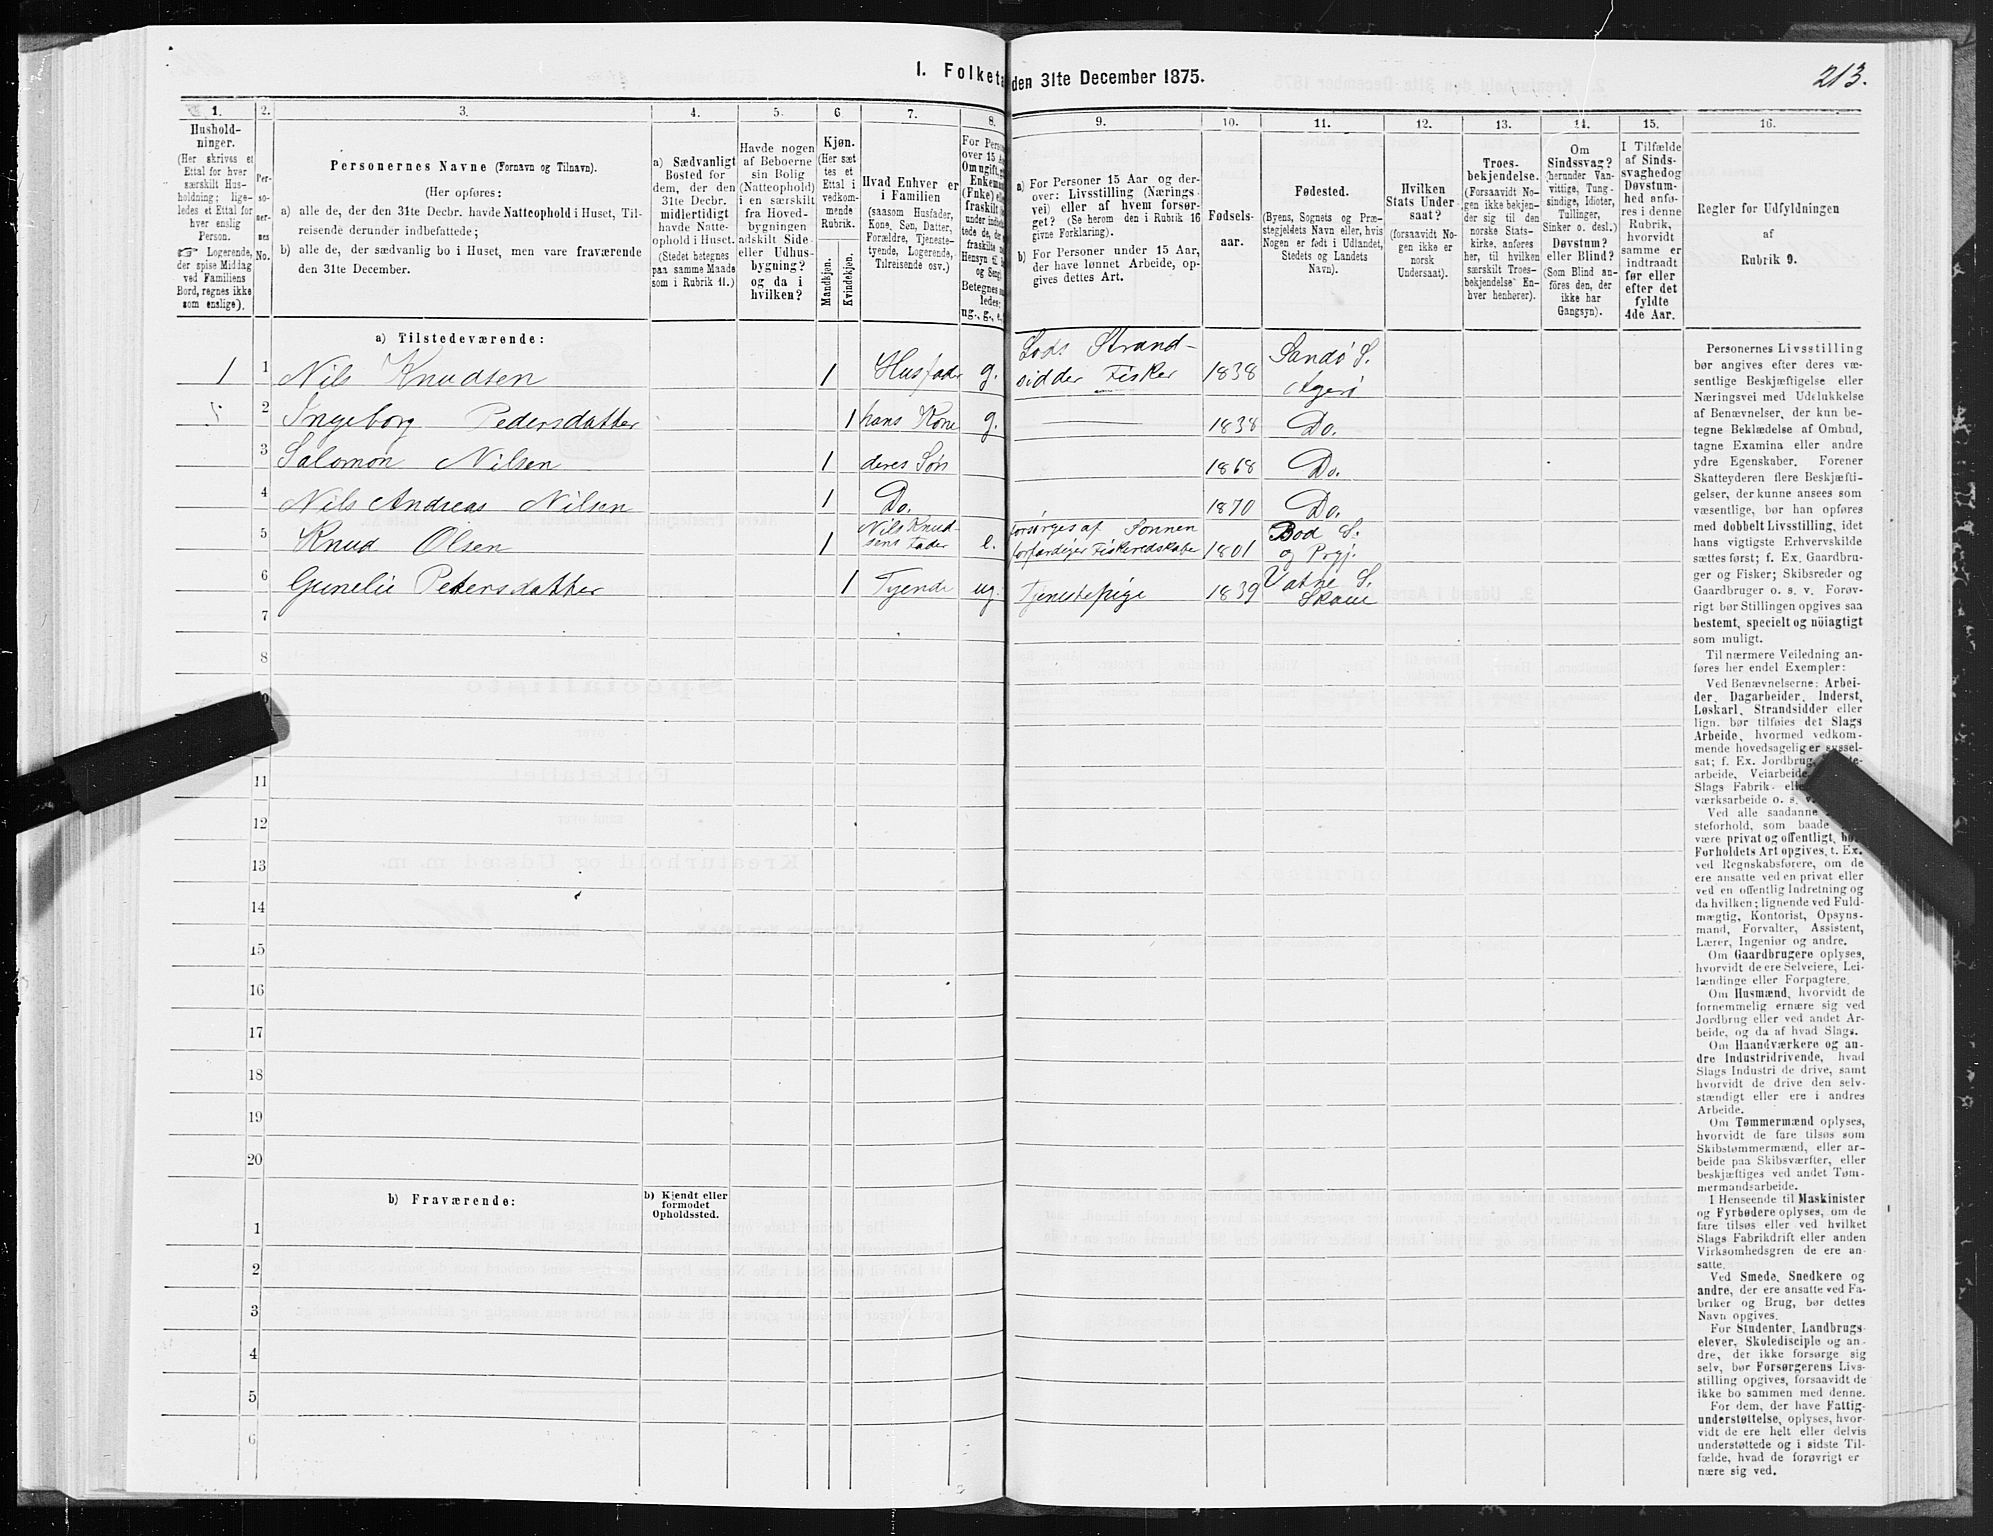 I. Folketa den 31te December 1875.
213.
1.
Hushold-
ninger.
(Her skrives et
Ettal for hver
særskilt Hus-
holdning; lige-
ledes et Ettal for
hver enslig
Person.
☞ Logerende,
der spise Middag
ved Familiens
Bord, regnes ikke
som enslige).
2.
Per-
so-
ner-
nes
No.
3.
Personernes Navne (Fornavn og Tilnavn).
(Her opføres:
a) alle de, der den 31te Decbr. havde Natteophold i Huset, Til-
reisende derunder indbefattede;
b) alle de, der sædvanlig bo i Huset, men vare fraværende
den 31te December.
4.
a) Sædvanligt
Bosted for
dem, der den
31te Decbr.
midlertidigt
havde Natte-
ophold i Huset.
(Stedet betegnes
paa samme Maade
som i Rubrik 11.)
5.
Havde nogen
af Beboerne
sin Bolig
(Natteophold)
i en særskilt
fra Hoved-
bygningen
adskilt Side-
eller Udhus-
bygning?
og da i
hvilken?
6
Kjøn.
(Her sæt
tes et
Ettal i
vedkom-
mende
Rubrik.
Mandkjøn.
Kvindekjøn.
7.
Hvad Enhver er
i Familien
(saasom Husfader,
Kone, Søn, Datter,
Forældre, Tjeneste-
tyende, Logerende,
Tilreisende osv.)
8.
For Perso
over 15 Aa
Om ugift, g
Enkema
(Enke) ell
fraskilt
under indbe
tede de, de
fraskilte
Hensyn til
og Seng
Betegnes
ledes:
ug., g., e.,
9.
a) For Personer 15 Aar og der-
over: Livsstilling (Nærings-
vei) eller af hvem forsør-
get? (Se herom den i Rubrik 16
givne Forklaring).
b) For Personer under 15 Aar,
der have lønnet Arbeide, op-
gives dettes Art.
10.
Fødsels-
aar.
11.
Fødested.
(Byens, Sognets og Præ-
stegjeldets Navn eller, hvis
Nogen er født i Udlandet,
Stedets og Landets
Navn).
12.
Hvilken
Stats Under
saat?
(forsaavidt No-
gen ikke er
norsk
Undersaat).
13.
Troes-
bekjendelse.
(Forsaavidt No-
gen ikke bekjen-
der sig til den
norske Stats-
kirke, anføres
her, til hvilken
særskilt Troes-
bekjendelse En-
hver henhører).
14.
Om
Sindssvag?
(herunder Van-
vittige, Tung-
sindige, Idioter,
Tullinger,
Sinker o. desl.)
Døvstum?
eller Blind?
(Som Blind an-
føres den, der
ikke har
Gangsyn).
15.
I Tilfælde
af Sinds-
svaghed og
Døvstum-
hed anfø-
res i denne
Rubrik,
hvorvidt
samme er
indtraadt
før eller
efter det
fyldte
4de Aar.
16.
Regler for Udfyldningen
af
Rubrik 9.
a) Tilstedeværende:
1 1 Nils Knudsen 1 Husfader g. Lods Strand-
sidder Fisker 1838 Sandø S.
Agerø
2 Ingeborg Pedersdatter 1 hans Kone g. 1838 Do.
3 Salomon Nilsen 1 deres Søn 1868 Do.
4 Nils Andreas Nilsen 1 Do. 1870 Do.
5 Knud Olsen 1 Nils Knud-
sens Fader e. forsørges af Sønnen
forfærdiger Fiskeredskaber 1801 Bod S.
og Prgj.
6 Gunelie Pedersdatter 1 Tyende ug. Tjenestepige 1839 Vatne S.
7
8
9
11
12
13
14
15
16
17
18
19
20
b) Fraværende:
b) Kjendt eller
formodet
Opholdssted.
1
2
3
4
5
6
Personernes Livsstilling
bør angives efter deres væ-
sentlige Beskjæftigelse eller
Næringsvei med Udelukkelse
af Benævnelser, der kun be-
tegne Beklædelse af Ombud,
tagne Examina eller andre
ydre Egenskaber. Forener
Skatteyderen flere Beskjæfti-
gelser, der kunne ansees som
væsentlige, bør han opføres
med dobbelt Livsstilling, idet
hans vigtigste Erhvervskilde
sættes først; f. Ex. Gaardbru-
ger og Fisker; Skibsreder og
Gaardbruger o. s. v. Forøv-
rigt bør Stillingen opgives saa
bestemt, specielt og nöiagtigt
som muligt.
Til nærmere Veiledning an-
føres her endel Exempler:
Ved Benævnelserne: Arbei-
der, Dagarbeider, Inderst,
Løskarl, Strandsidder eller
lign. bør tilføies det Slags
Arbeide, hvormed vedkom-
mende hovedsagelig er syssel-
sat; f. Ex. Jordbrug,
arbeide, Veiarbeide
Slags Fabrik- elle
værksarbeide o. s. v.
Ved alle saadanne
steforhold, som baade
være privat og offentligt, bør
Forholdets Art opgives, t. Ex.
ved Regnskabsførere, om de
ere ansatte ved en privat eller
ved en offentlig Indretning og
da hvilken; lignende ved Fuld-
mægtig, Kontorist, Opsyns-
mand, Forvalter, Assistent,
Lærer, Ingeniør og andre.
Om Gaardbrugere oplyses,
hvorvidt de ere Selveiere, Lei-
lændinge eller Forpagtere.
Om Husmænd, hvorvidt de
fornemmelig ernære sig ved
Jordbrug eller ved andet Ar-
beide, og da af hvad Slags.
Om Haandværkere og an-
dre Industridrivende, hvad
Slags Industri de drive, samt
hvorvidt de drive den selv-
stændigt eller ere i andres
Arbeide.
Om Tømmermænd oplyses,
hvorvidt de fare tilsøs som
Skibstømmermænd, eller ar-
beide paa Skibsværfter, eller
beskjæftiges ved andet Tøm-
mermandsarbeide.
I Henseende til Maskinister
og Fyrbødere oplyses, om de
fare tilsøs eller ved hvilket
Slags Fabrikdrift eller anden
Virksomhedsgren de ere an-
satte.
Ved Smede, Snedkere og
andre, der ere ansatte ved Fa-
briker og Brug, bør dettes
Navn opgives.
For Studenter, Landbrugs-
elever, Skoledisciple og an-
dre, der ikke forsørge sig
selv, bør Forsørgerens Livs-
stilling opgives, forsaavidt de
ikke bo sammen med denne.
For dem, der have Fattig-
understøttelse, oplyses, hvor-
vidt de ere helt eller delvis
understøttede og i sidste Til-
fælde, hvad de forøvrigt er
nære sig ved.